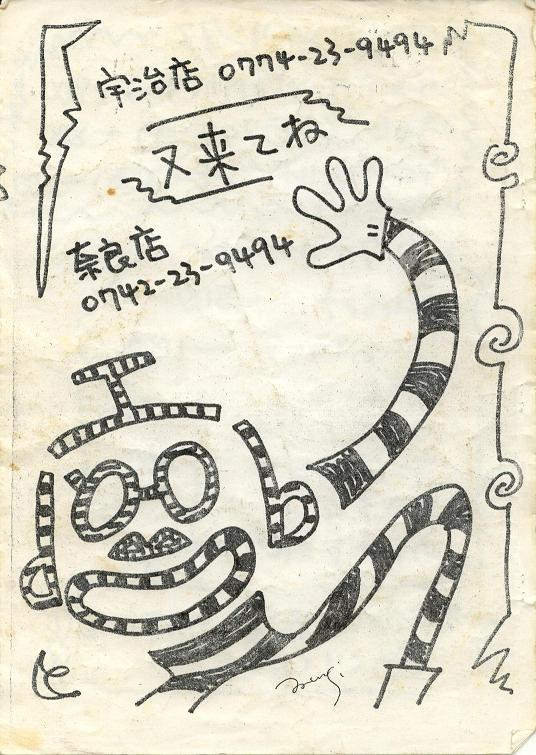 宇治店 0774-23-9494
又来てね
奈良店
0742-23-9494